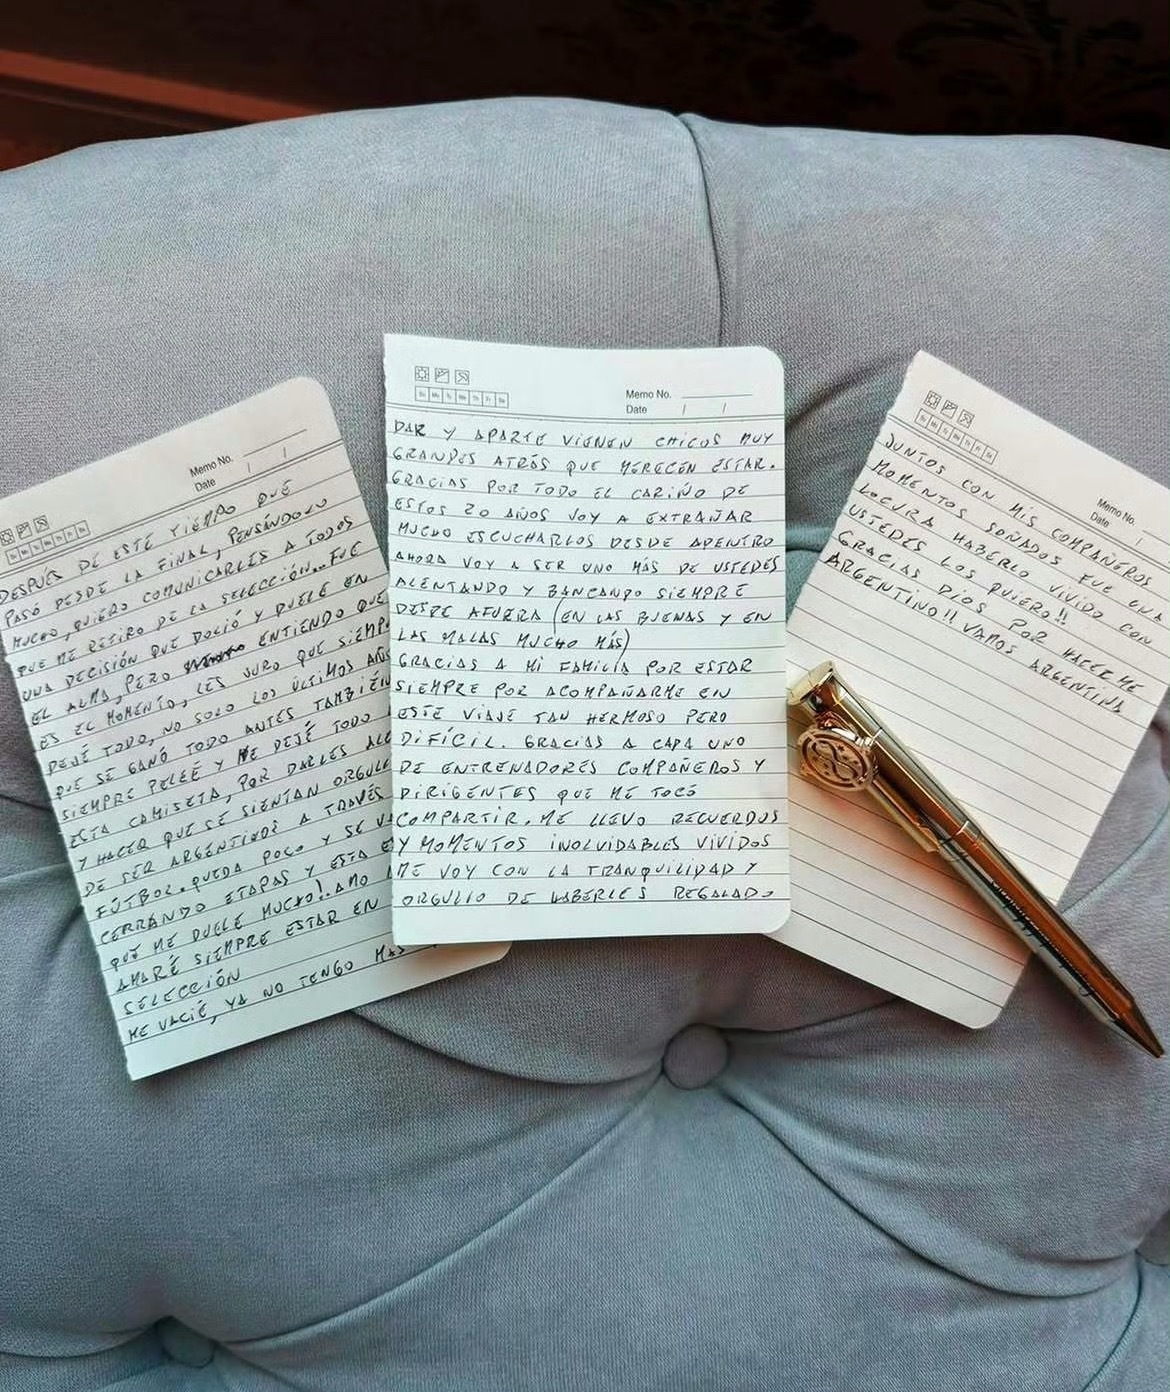 Memo No.
Date / /
DESPUÉS DE ESTE TIEMPO QUE
PASÓ DESDE LA FINAL, PENSÁNDOLO
MUCHO, QUIERO COMUNICARLES A TODOS
QUE ME RETIRO DE LA SELECCIÓN... FUE
UNA DECISIÓN QUE DOLIÓ Y DUELE EN
EL ALMA, PERO ENTIENDO QUE
ES EL MOMENTO, LES JURO QUE SIEMP
DEJÉ TODO, NO SOLO LOS ÚLTIMOS AÑOS
QUE SE GANÓ TODO ANTES TAMBIÉN
SIEMPRE PELEÉ Y ME DEJÉ TODO
ESTA CAMISETA, POR DARLES
Y HACER QUE SE SIENTAN
DE SER ARGENTINOS A TRAVÉS
FÚTBOL. QUEDA POCO Y SE
CERRANDO ETAPAS Y ESTA
QUE ME DUELE MUCHO!. AMO
AMARÉ SIEMPRE ESTAR EN
SELECCIÓN
ME VACIÉ, YA NO TENGO MAS
Su Mo Tu We Th Fr Sa
Memo No.
Date / /
DAR Y APARTE VIENEN CHICOS MUY
GRANDES ATRÁS QUE MERECEN ESTAR.
GRACIAS POR TODO EL CARIÑO DE
ESTOS 20 AÑOS VOY A EXTRAÑAR
MUCHO ESCUCHARLOS DESDE ADENTRO
AHORA VOY A SER UNO MÁS DE USTEDES
ALENTANDO Y BANCANDO SIEMPRE
DESDE AFUERA (EN LAS BUENAS Y EN
LAS MALAS MUCHO MÁS)
GRACIAS A MI FAMILIA POR ESTAR
SIEMPRE POR ACOMPAÑARME EN
ESTE VIAJE TAN HERMOSO PERO
DIFÍCIL. GRACIAS A CADA UNO
DE ENTRENADORES COMPAÑEROS Y
DIRIGENTES QUE ME TOCÓ
COMPARTIR. ME LLEVO RECUERDOS
Y MOMENTOS INOLVIDABLES VIVIDOS
ME VOY CON LA TRANQUILIDAD Y
ORGULLO DE HABERLES REGALADO
Su Mo Tu We Th Fr Sa
Memo No.
Date /
JUNTOS CON MIS COMPAÑEROS
MOMENTOS SOÑADOS FUE UNA
LOCURA HABERLO VIVIDO CON
USTEDES LOS QUIERO!!
GRACIAS DIOS POR HACERME
ARGENTINO!! VAMOS ARGENTINA